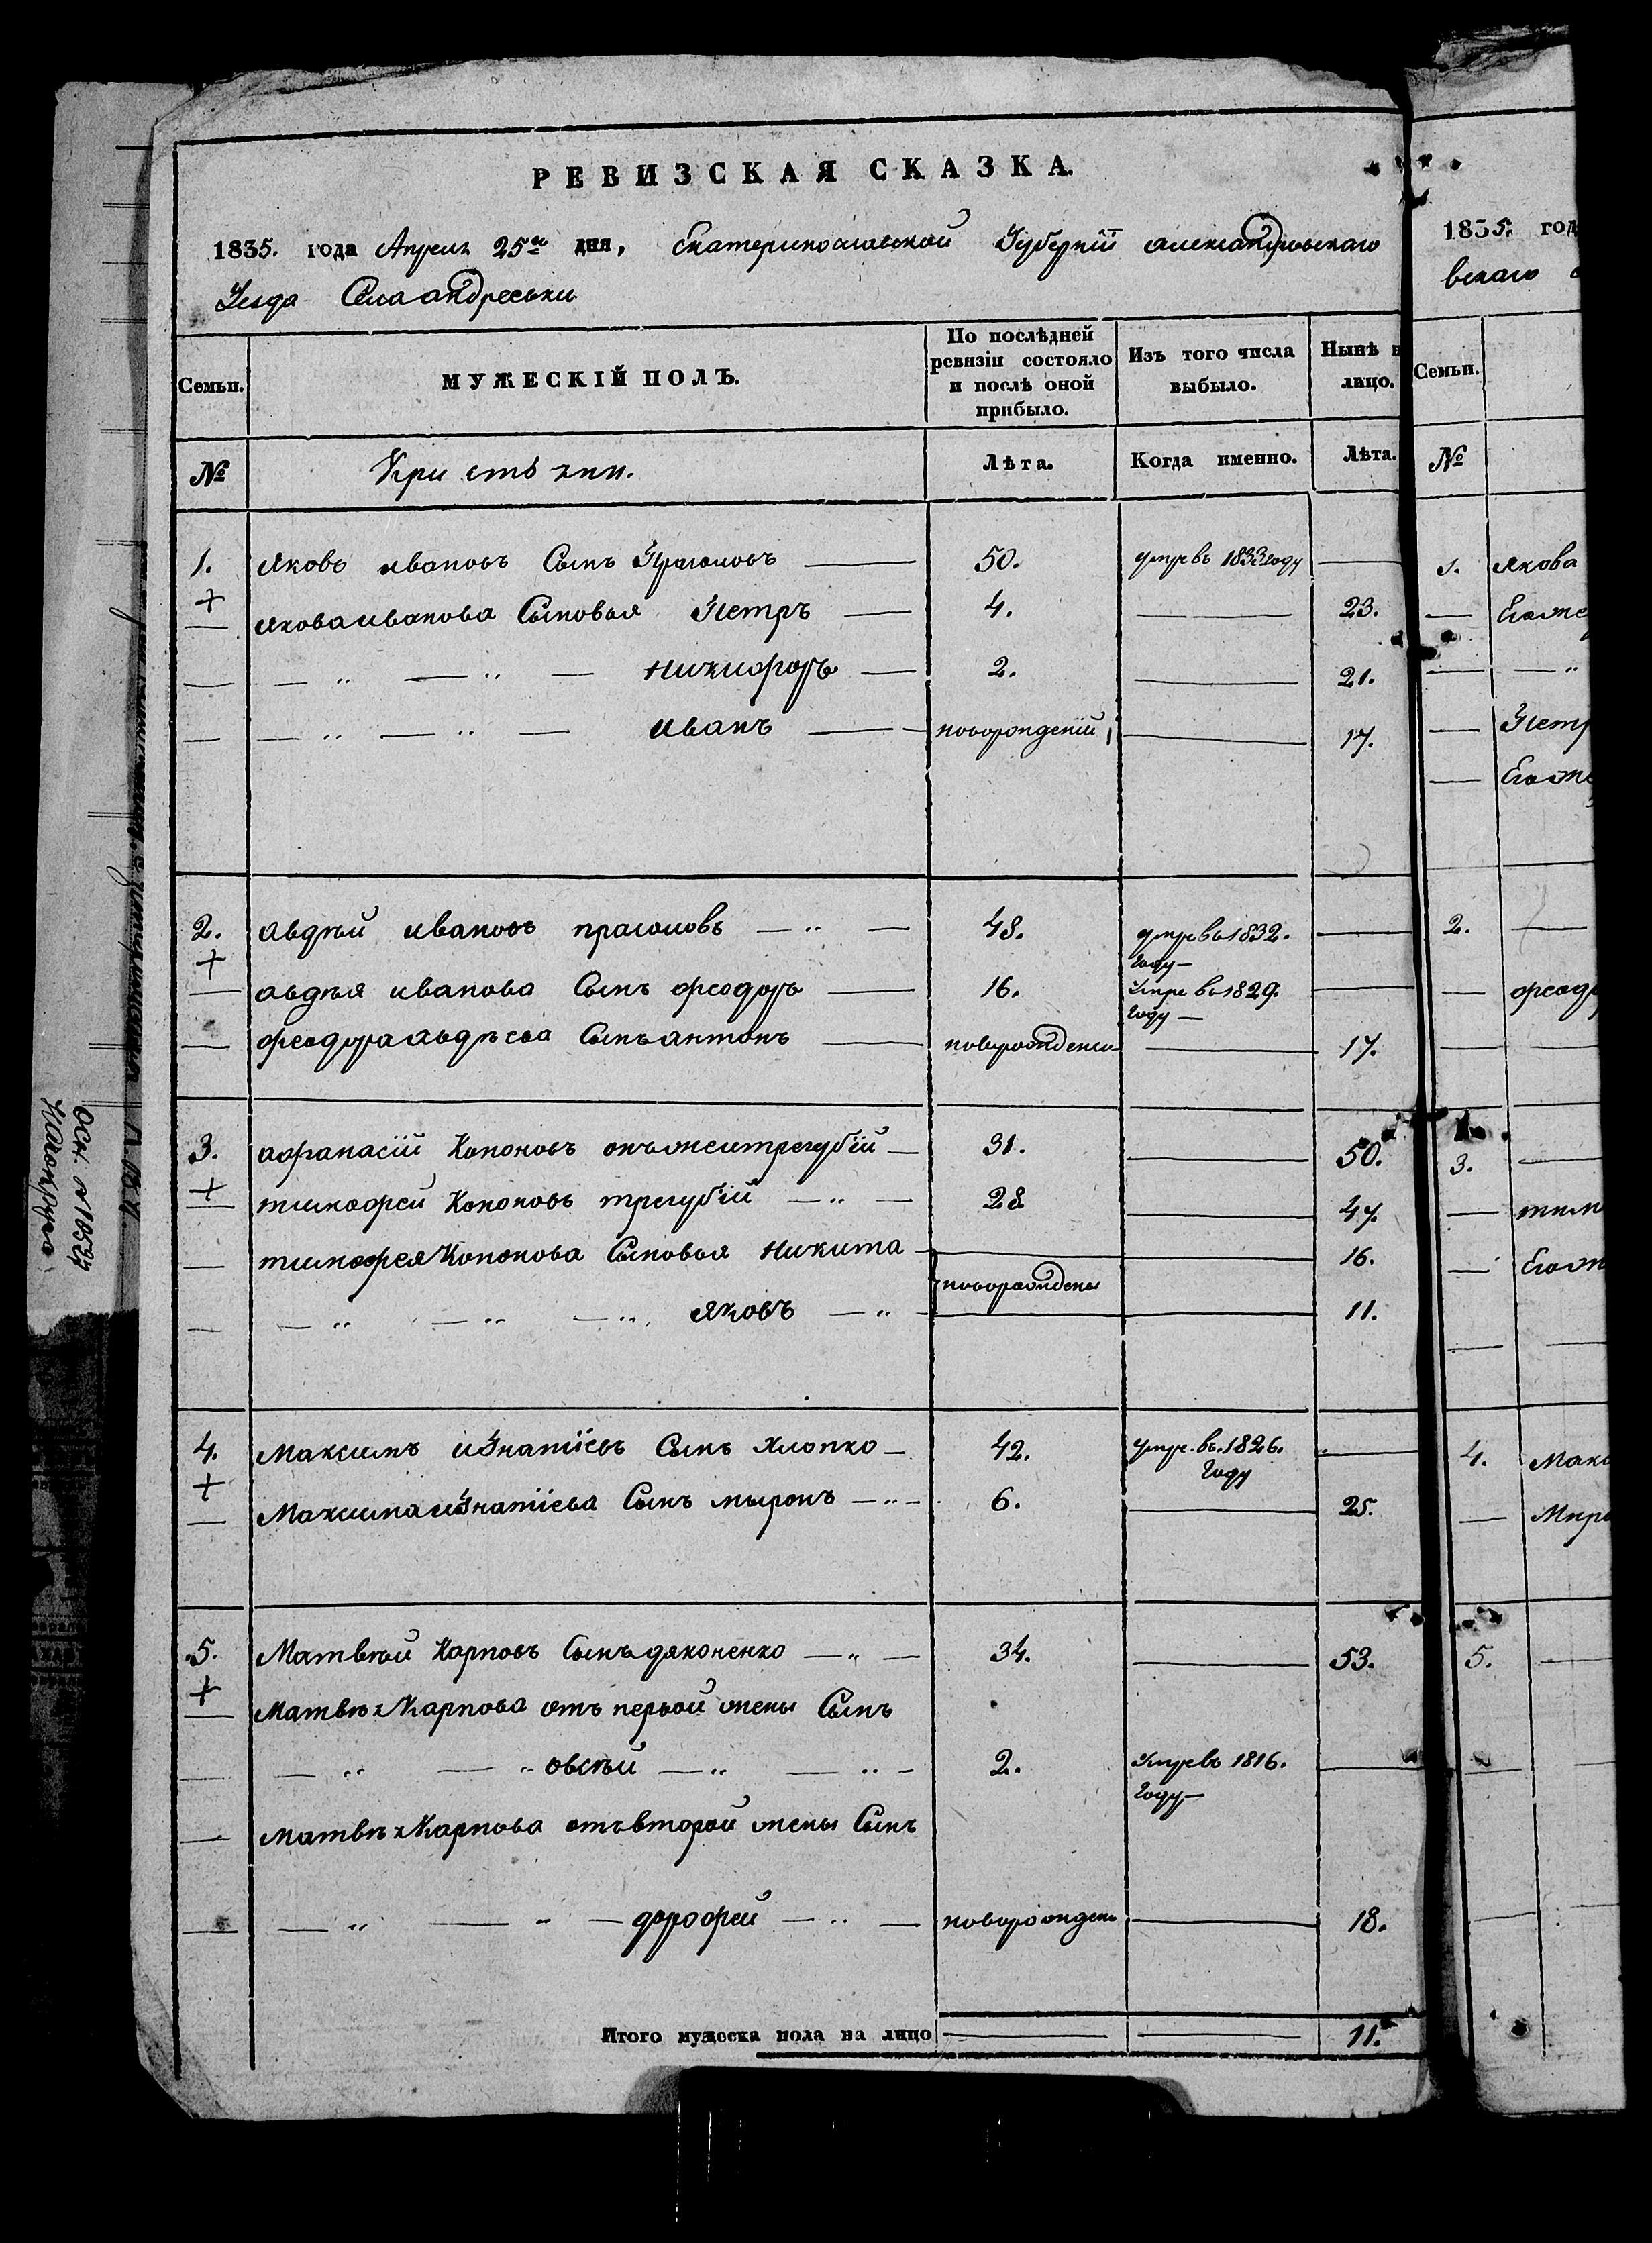 РЕВИЗСКАЯ СКАЗКА.
1835. года Апреля 25го дня, Екатеринославской Губернїи александровскаго
Уезда Села андреевки
Семьи. МУЖЕСКІЙ ПОЛЪ. По послѣдней ревизіи состояло и послѣ оной прибыло. Изъ того числа выбыло. Нынѣ н лицо.
№ Кристьяни. Лѣта. Когда именно. Лѣта.
1. Яковъ ивановъ Сынъ 50. умре въ 1833 году —
+ Якова иванова Сыновья Петръ — 4. — 23.
— — " — " — никифоръ — 2. — 21.
— — " — " — иванъ — новорожденїй — 17.
2. авдѣй ивановъ — " — 48. умре въ 1832. —
году —
+ авдѣя иванова Сынъ феодоръ — 16. умре въ 1829. —
году —
— феодора авдѣева Сынъ антонъ — — 17.
3. афанасїй Кононовъ трегубїй — 31. — 50.
+ тимофей Кононовъ трегубїй — " — 28. — 47.
— тимофея Кононова Сыновья Никита — — 16.
новорождены
— — " — " — " Яковъ — " — 11.
4. Максимъ игнатїевъ Сынъ Хлопко — 42. умре. въ. 1826. —
году
+ Максима игнатїева Сынъ мыронъ — " — 6. — 25.
5. Матвѣй Карповъ Сынъ дяконенко — " — 34. — 53.
+ Матвѣя Карпова отъ первой жены Сынъ
— — " — " овсѣй — " — " — 2. умре въ 1816. —
году —
— Матвѣя Карпова отъ второй жены Сынъ
— — " — " — дорофей — " — новорожденъ — 18.
Итого мужеска пола на лицо — — 11.
1835. год
вскаго
Семьи.
№
1. Якова
— Егоже
— — "
— Петр
— Егоже
2. —
— феод
— —
3. —
— тим
— Егож
— —
4. Макс
— Миро
5. —